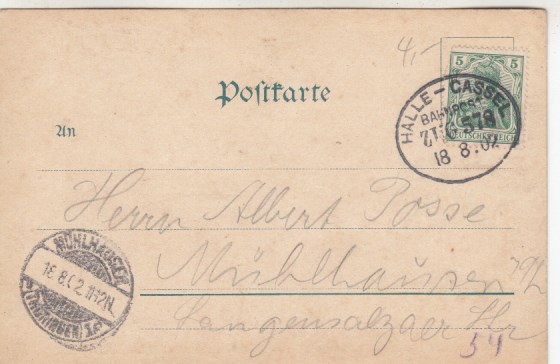 4,-
5 5
DEUTSCHES REICH
HALLE - CASSEL
BAHNPOST
ZUG 579
18 8.02
Postkarte
An
Herrn Albert Posse
Mühlhausen
Langensalzaer Str
54
MÜHLHAUSEN
8.02.11-12N.
(THÜRINGEN)